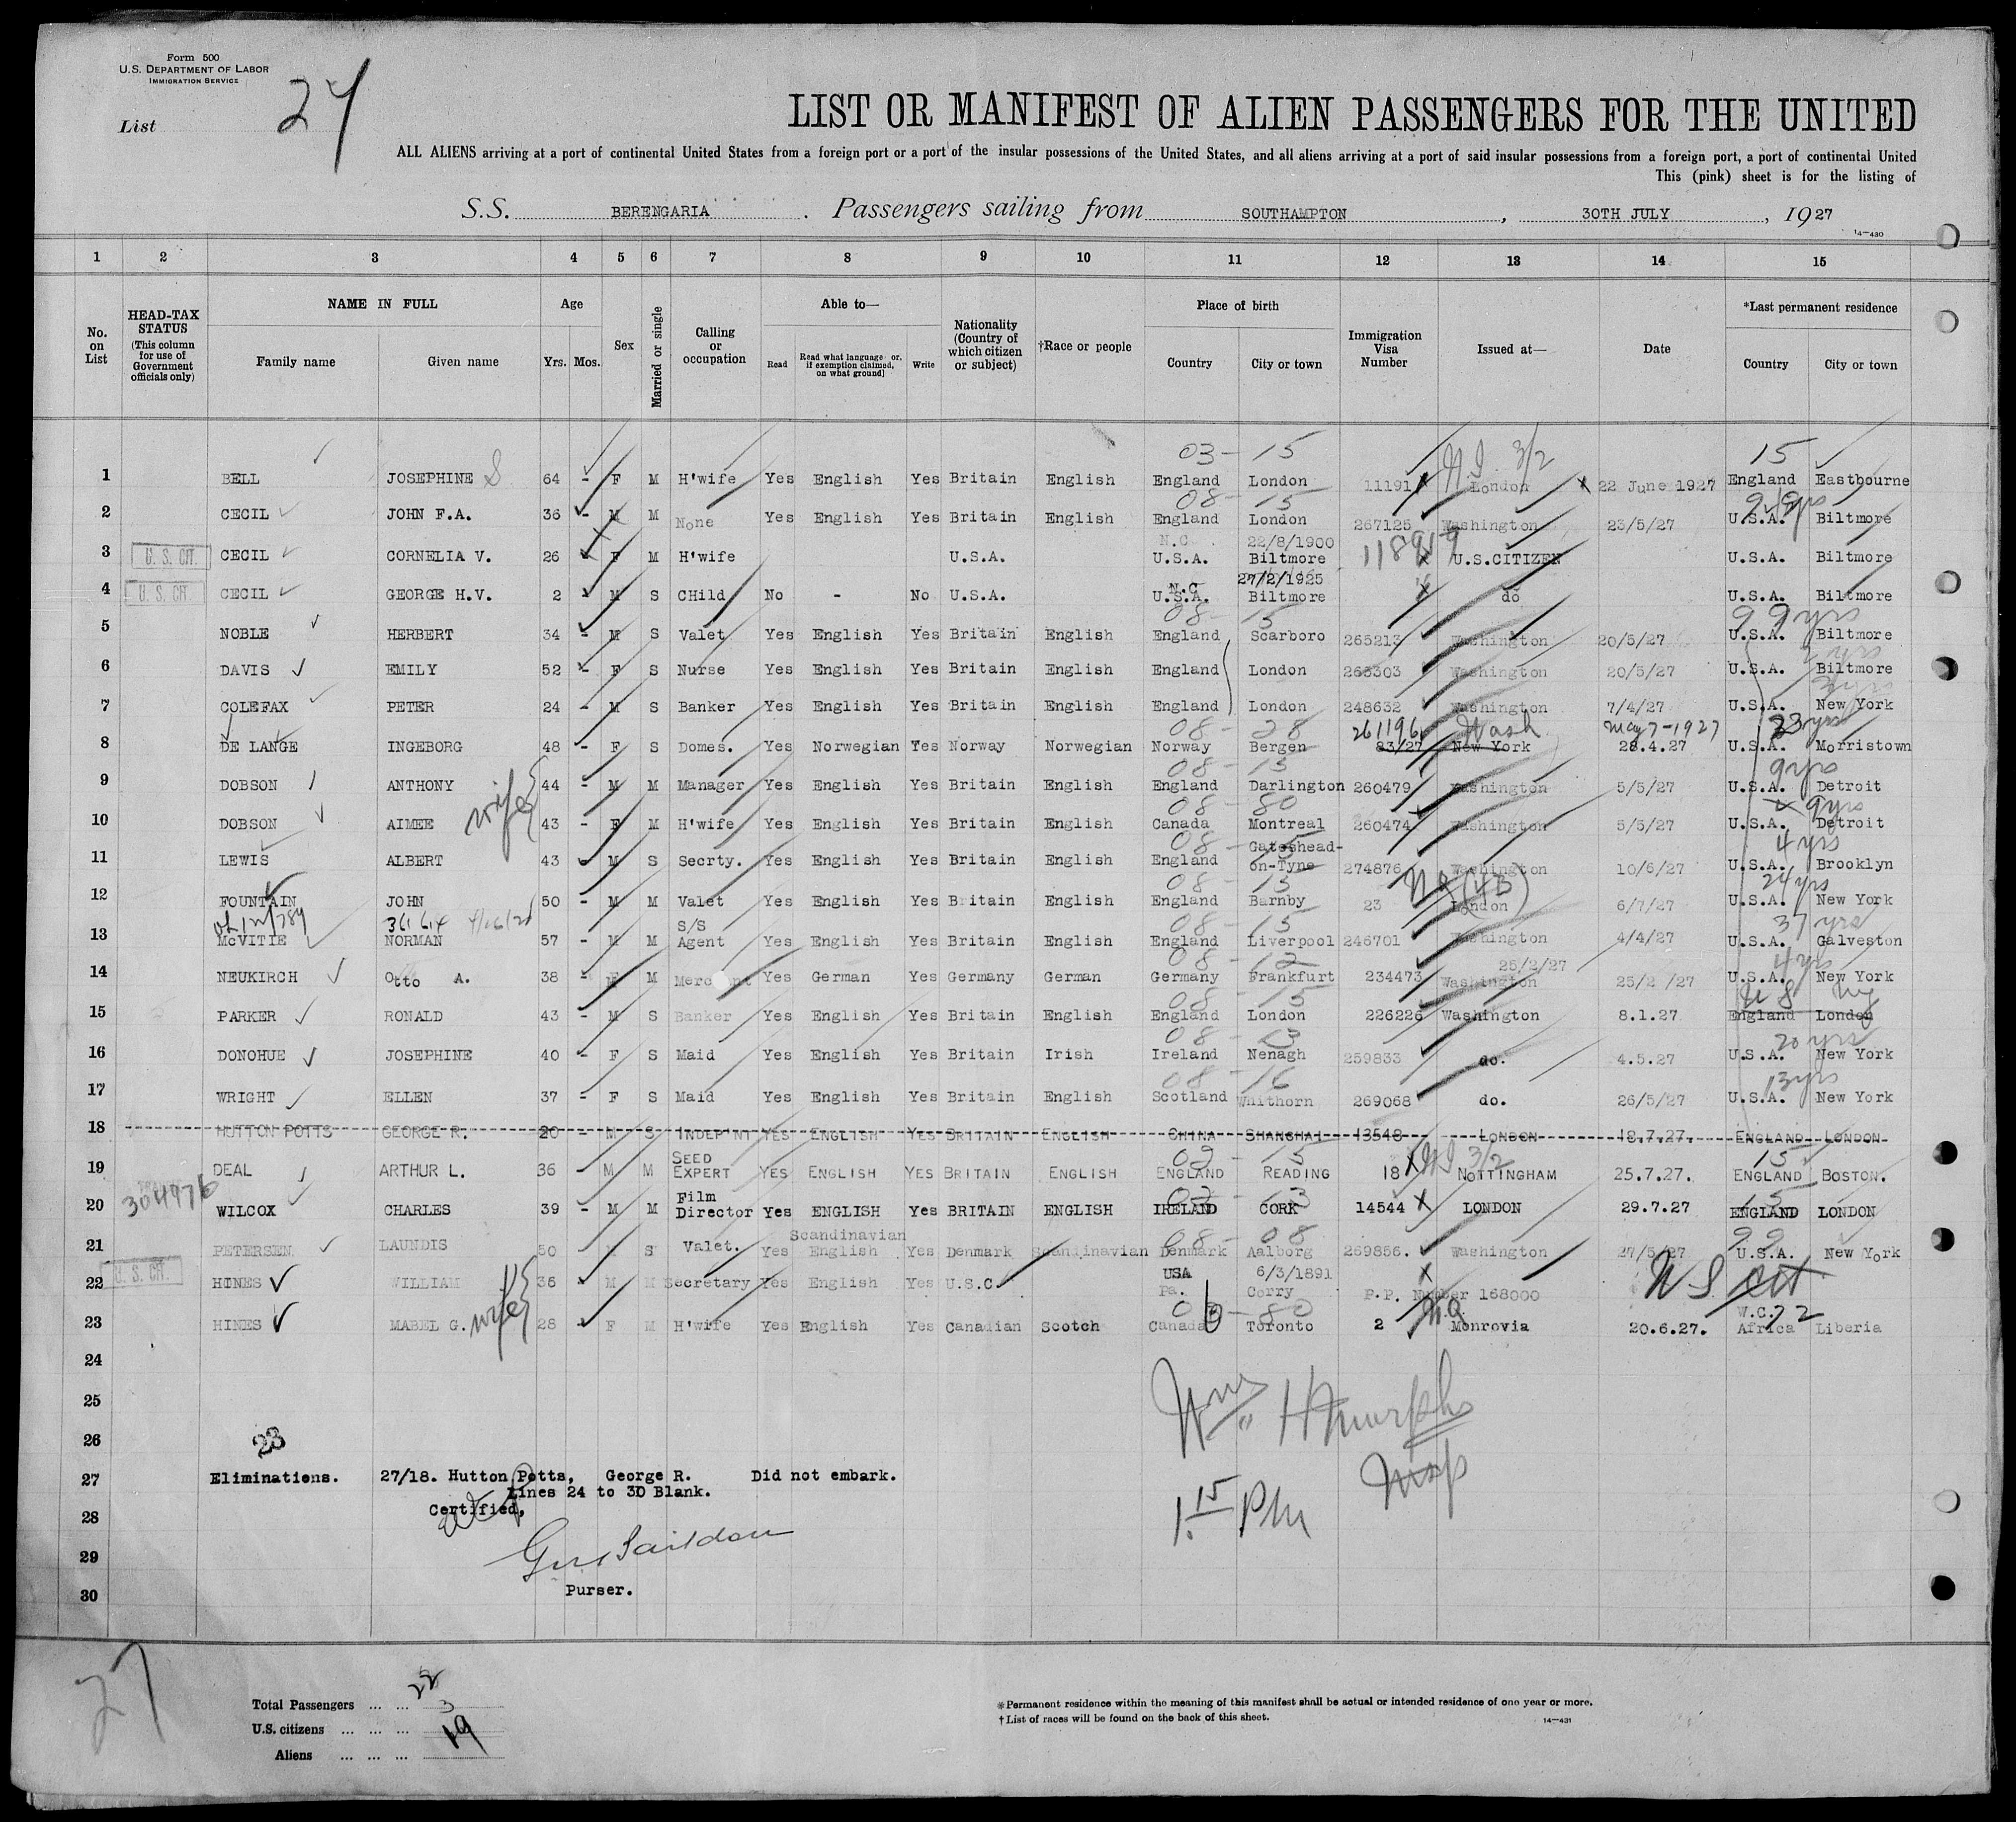 Form 500
U.S. DEPARTMENT OF LABOR
IMMIGRATION SERVICE
List 27
LIST OR MANIFEST OF ALIEN PASSENGERS FOR THE UNITED
ALL ALIENS arriving at a port of continental United States from a foreign port or a port of the insular possessions of the United States, and all aliens arriving at a port of said insular possessions from a foreign port, a port of continental United
This (pink) sheet is for the listing of
S.S. BERENGARIA. Passengers sailing from SOUTHAMPTON, 30TH JULY, 1927
14—430
1 2 3 4 5 6 7 8 9 10 11 12 13 14 15
No. on List
HEAD-TAX STATUS (This column for use of Government officials only)
NAME IN FULL
Family name
Given name
Age
Yrs. Mos.
Sex
Married or single
Calling or occupation
Able to—
Read
Read what language or, if exemption claimed, on what ground]
Write
Nationality (Country of which citizen or subject)
†Race or people
Place of birth
Country
City or town
Immigration Visa Number
Issued at—
Date
*Last permanent residence
Country
City or town
03- 15 N.I. 3/2 15
1 BELL JOSEPHINE S 64 - F M H'wife Yes English Yes Britain English England London 11191 x London x 22 June 1927 England Eastbourne
08- 15
2 CECIL JOHN F.A. 36 - M M None Yes English Yes Britain English England London 267125 Washington 23/5/27 U.S.A. Biltmore
N.C. 22/8/1900
3 U.S. CIT. CECIL CORNELIA V. 26 F M H'wife U.S.A. U.S.A. Biltmore x U.S.CITIZEN U.S.A. Biltmore
27/2/1925
N.C.
4 U.S. CIT CECIL GEORGE H.V. 2 - M S CHild No - No U.S.A. U.S.A. Biltmore x do U.S.A. Biltmore
08- 15 99 yrs
5 NOBLE HERBERT 34 - M S Valet Yes English Yes Britain English England Scarboro 265213 Washington 20/5/27 U.S.A. Biltmore
6 DAVIS EMILY 52 - F S Nurse Yes English Yes Britain English England London 265303 Washington 20/5/27 U.S.A. Biltmore
3 yrs
7 COLEFAX PETER 24 - M S Banker Yes English Yes Britain English England London 248632 Washington 7/4/27 U.S.A. New York
08- 28 261196 Wash May 7-1927 23 yrs
8 DE LANGE INGEBORG 48 - F S Domes. Yes Norwegian Yes Norway Norwegian Norway Bergen 83/27 New York 28.4.27 U.S.A. Morristown
08- 15 9 yrs
9 DOBSON ANTHONY wife 44 - M M Manager Yes English Yes Britain English England Darlington 260479 Washington 5/5/27 U.S.A. Detroit
08- 80 9 yrs
10 DOBSON AIMEE 43 - F M H'wife Yes English Yes Britain English Canada Montreal 260474 Washington 5/5/27 U.S.A. Detroit
08- 15 Gateshead- 4 yrs
11 LEWIS ALBERT 43 M S Secrty. Yes English Yes Britain English England on-Tyne 274876 Washington 10/6/27 U.S.A. Brooklyn
08- 15 24 yrs
12 FOUNTAIN JOHN 50 - M M Valet Yes English Yes Britain English England Barnby 23 London 6/7/27 U.S.A. New York
S/S 08- 15 37 yrs
13 McVITIE NORMAN 57 - M M Agent Yes English Yes Britain English England Liverpool 246701 Washington 4/4/27 U.S.A. Galveston
08- 12 25/2/27 4 yrs
14 NEUKIRCH Otto A. 38 - M Yes German Yes Germany German Germany Frankfurt 234473 Washington 25/2 /27 U.S.A. New York
08- 15 U S NY
15 PARKER RONALD 43 - M S Banker Yes English Yes Britain English England London 226226 Washington 8.1.27 England London
08- 23 20 yrs
16 DONOHUE JOSEPHINE 40 - F S Maid Yes English Yes Britain Irish Ireland Nenagh 259833 do. 4.5.27 U.S.A. New York
08- 16 13 yrs
17 WRIGHT ELLEN 37 - F S Maid Yes English Yes Britain English Scotland Whithorn 269068 do. 26/5/27 U.S.A. New York
18 HUTTON POTTS GEORGE R. 20 - M S INDEP'NT YES ENGLISH YES BRITAIN ENGLISH CHINA SHANGHAI 13548 LONDON 18.7.27. ENGLAND LONDON
SEED 03- 15 N.I. 3/2 15
19 DEAL ARTHUR L. 36 M M EXPERT YES ENGLISH YES BRITAIN ENGLISH ENGLAND READING 18 x NOTTINGHAM 25.7.27. ENGLAND BOSTON.
Film 03- 13 15
20 304976 WILCOX CHARLES 39 - M M Director Yes ENGLISH Yes BRITAIN ENGLISH IRELAND CORK 14544 x LONDON 29.7.27 ENGLAND LONDON
Scandinavian 08- 08 99
21 PETERSEN LAUNDIS 50 M S Valet. Yes English Yes Denmark Scandinavian Denmark Aalborg 269856. Washington 27/5/27 U.S.A. New York
U.S. CIT. USA 6/3/1891 x U S Cit
22 HINES WILLIAM wife 36 M M Secretary Yes English Yes U.S.C. Pa. Corry P.P. Number 168000
80 W.C. 72
23 HINES MABEL G. 28 - F M H'wife Yes English Yes Canadian Scotch Canada Toronto 2 N.Q. Monrovia 20.6.27. Africa Liberia
24
25
26 23
27 Eliminations. 27/18. Hutton Potts, George R. Did not embark.
Lines 24 to 30 Blank.
28 Certified,
29
30 Purser.
Wm H Murphy
Insp
1.15 PM
27
Total Passengers ... ... 22
U.S. citizens ... ... ... 3
Aliens ... ... ... 19
*Permanent residence within the meaning of this manifest shall be actual or intended residence of one year or more.
†List of races will be found on the back of this sheet. 14—431